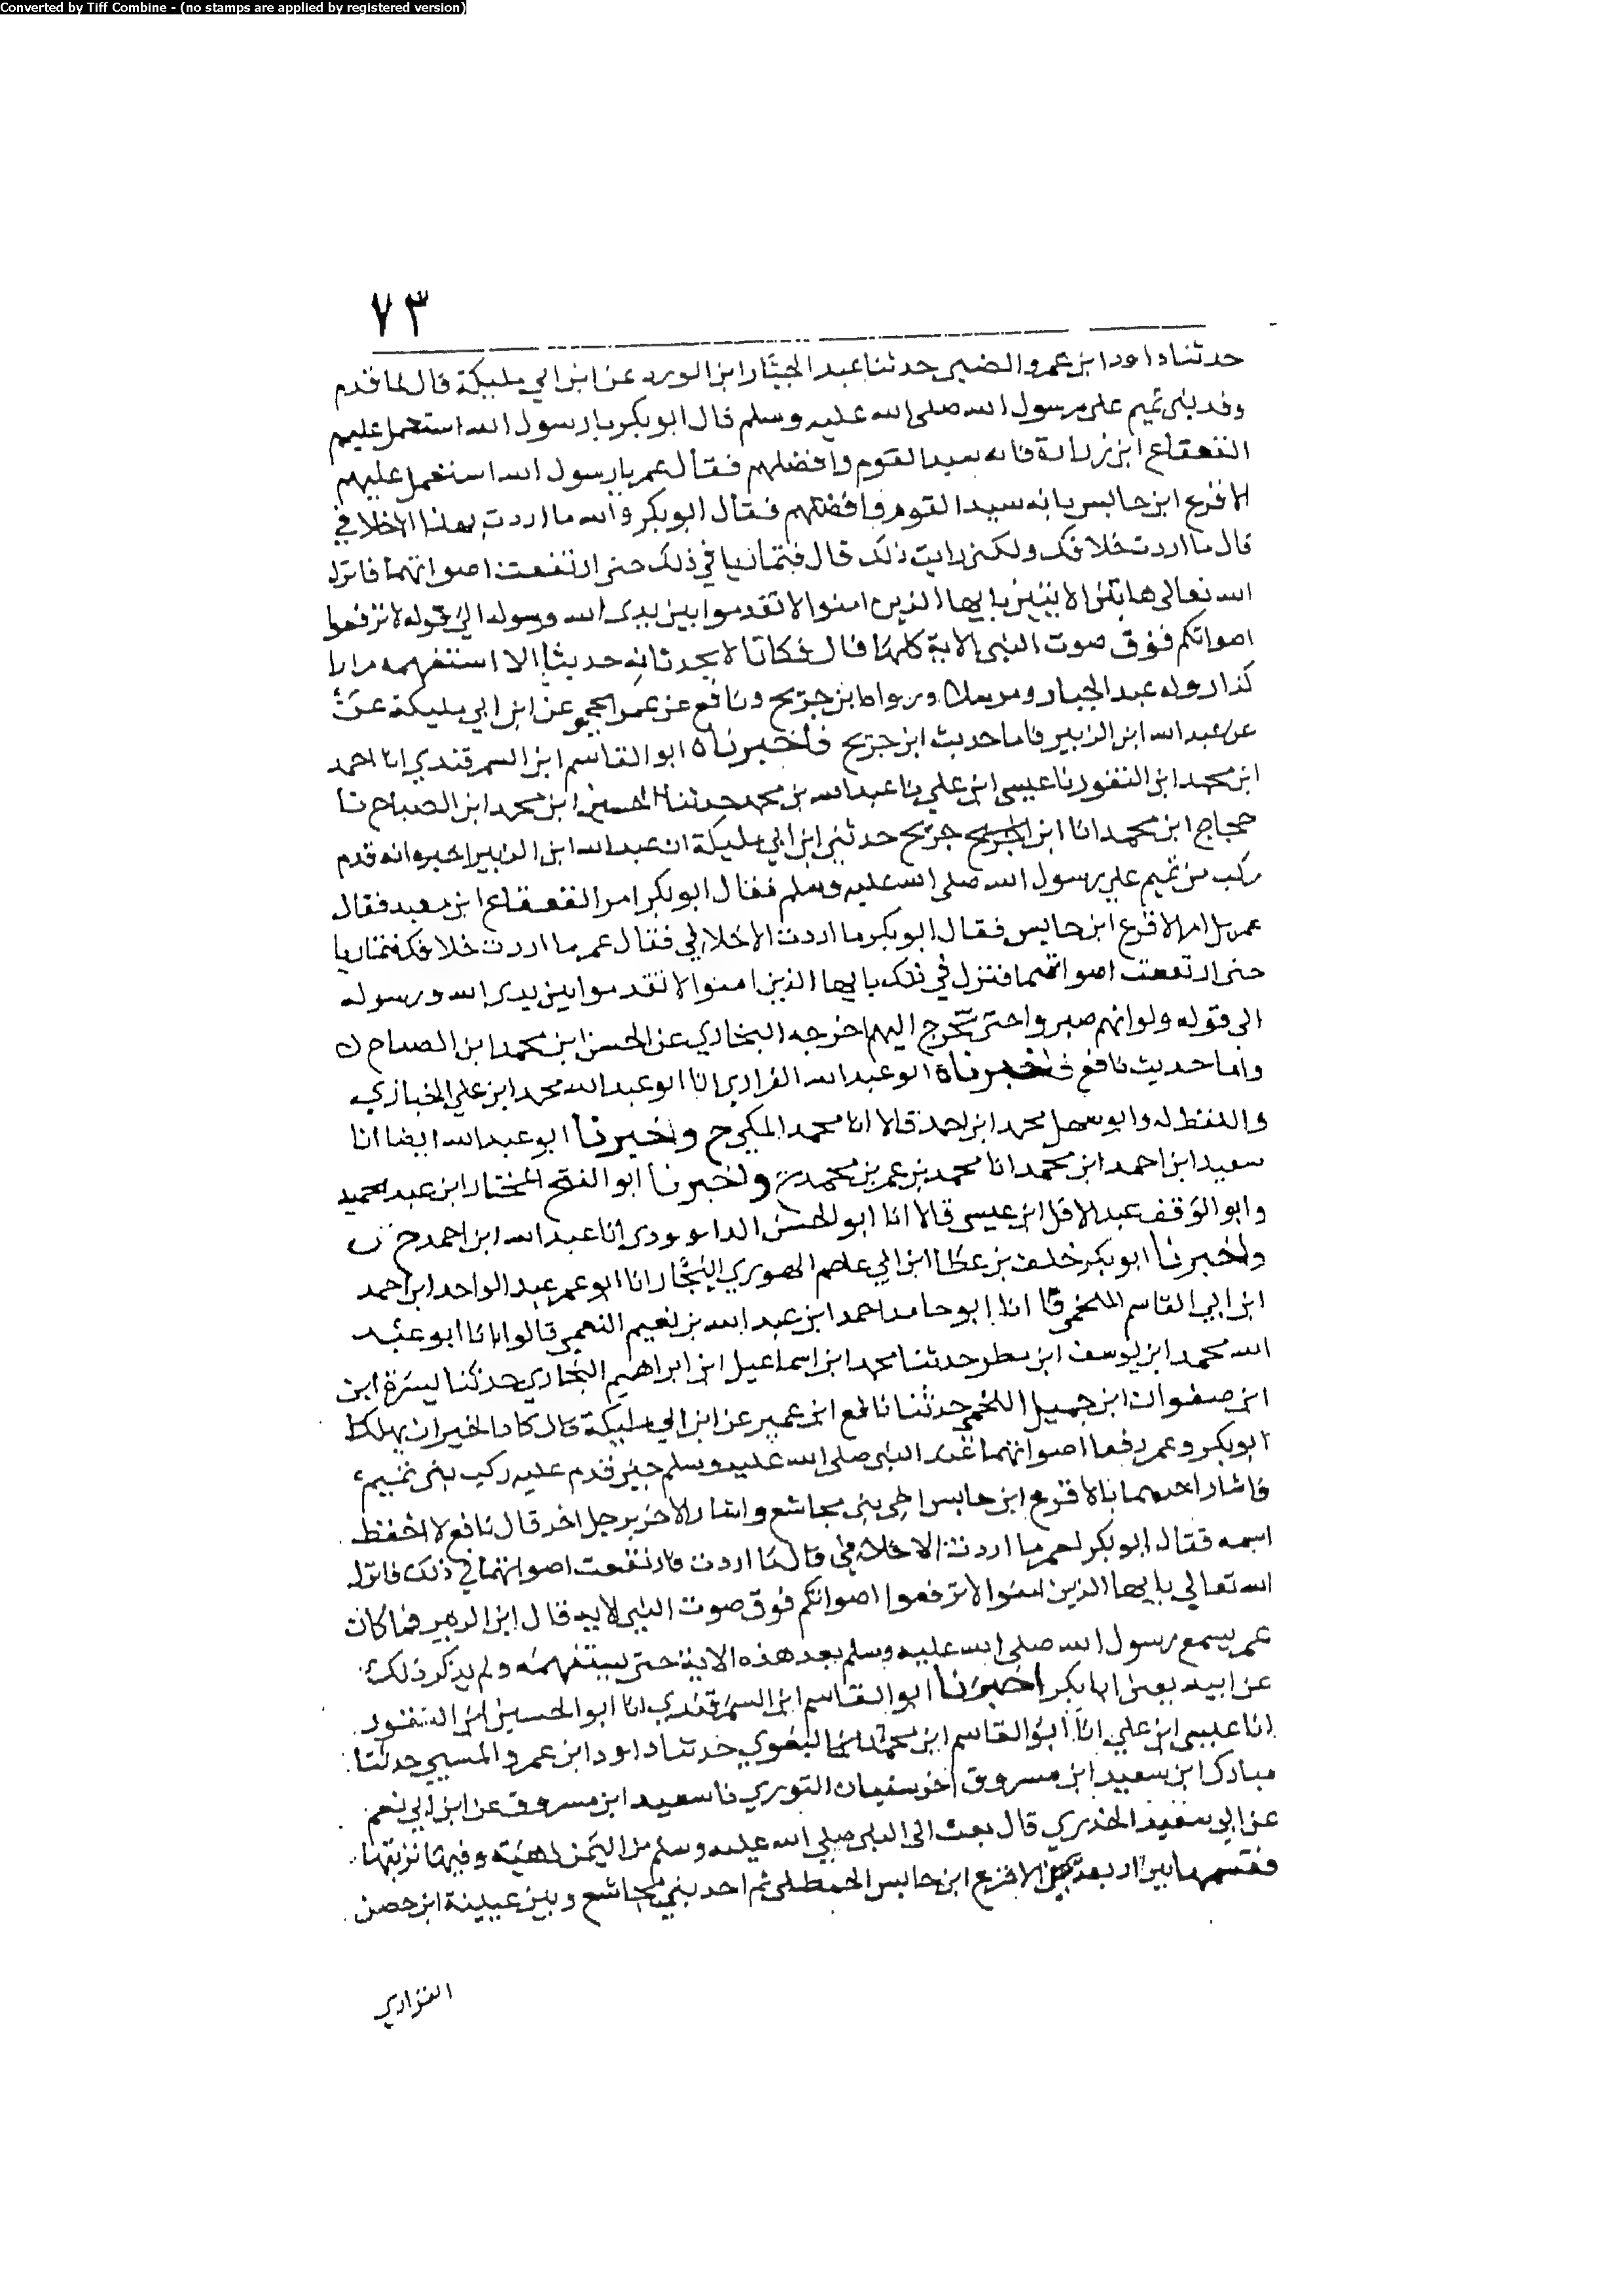 Converted by Tiff Combine - (no stamps are applied by registered version)
٧٣
حدثنا داود ابن عمرو الضبي حدثنا عبد الجبار ابن الورد عن ابن ابي مليكة قال لما قدم
وفد بني تميم على رسول الله صلى الله عليه وسلم قال ابو بكر يا رسول الله استعمل عليهم
القعقاع ابن زرارة فانه سيد القوم وافضلهم فقال عمر يا رسول الله استعمل عليهم
الاقرع ابن حابس فانه سيد القوم وافضلهم فقال ابو بكر والله ما اردت بهذا الاخلافي
قال ما اردت خلافك ولكني رايت ذلك قال فتماريا في ذلك حتى ارتفعت اصواتهما فانزل
الله تعالى هاتين الايتين يا ايها الذين امنوا لا تقدموا بين يدي الله ورسوله الى قوله لا ترفعوا
اصواتكم فوق صوت النبي الاية كلها قال فكانا لا يحدثانه حديثا الا استفهمه مرارا
كذا رواه عبد الجبار ورواه ابن جريج ونافع عن عمر الجمحي عن ابن ابي مليكة
عن عبد الله ابن الزبير فاما حديث ابن جريج فاخبرناه ابو القاسم ابن السمرقندي انا احمد
ابن محمد ابن النقور نا عيسى ابن علي نا عبد الله بن محمد حدثنا الحسين ابن محمد ابن الصباح نا
حجاج ابن محمد انا ابن جريج حدثني ابن ابي مليكة ان عبد الله ابن الزبير اخبره انه قدم
ركب من تميم على رسول الله صلى الله عليه وسلم فقال ابو بكر امر القعقاع ابن معبد فقال
عمر بل امر الاقرع ابن حابس فقال ابو بكر ما اردت الا خلافي فقال عمر ما اردت خلافك فتماريا
حتى ارتفعت اصواتهما فنزل في ذلك يا ايها الذين امنوا لا تقدموا بين يدي الله ورسوله
الى قوله ولو انهم صبروا حتى تخرج اليهم اخرجه البخاري عن الحسن ابن محمد ابن الصباح
واما حديث نافع فاخبرناه ابو عبد الله الفراوي انا ابو عبد الله محمد ابن علي الخبازي
واللفظ له وابو سهل محمد ابن احمد قالا انا محمد المكي ح واخبرنا ابو عبد الله ايضا انا
سعيد ابن احمد ابن محمد انا محمد بن عمر بن محمد واخبرنا ابو الفتح المختار ابن عبد الحميد
وابو الوقف عبد الاول ابن عيسى قالا انا ابو الحسن الداوودي انا عبد الله ابن احمد ح
واخبرنا ابو بكر خلف بن عطا ابن ابي عاصم الهروي النجار انا ابو عمر عبد الواحد ابن احمد
ابن ابي القاسم انا ابو حامد احمد ابن عبد الله بن نعيم النعيمي قالوا انا ابو عبد
الله محمد ابن يوسف ابن مطر حدثنا محمد ابن اسماعيل ابن ابراهيم البخاري حدثنا يسرة ابن
ابن صفوان ابن جميل اللخمي حدثنا نافع ابن عمير عن ابن ابي مليكة قال كاد الخيران يهلكا
ابو بكر وعمر رفعا اصواتهما عند النبي صلى الله عليه وسلم حين قدم عليه ركب بني تميم
فاشار احدهما بالاقرع ابن حابس اخي بني مجاشع واشار الاخر برجل اخر قال نافع لا احفظ
اسمه فقال ابو بكر لعمر ما اردت الا خلافي قال ما اردت فارتفعت اصواتهما في ذلك فانزل
الله تعالى يا ايها الذين امنوا لا ترفعوا اصواتكم فوق صوت النبي الاية قال ابن الزبير فما كان
عمر يسمع رسول الله صلى الله عليه وسلم بعد هذه الاية حتى يستفهمه ولم يذكر ذلك
عن ابيه يعني ابا بكر اخبرنا ابو القاسم ابن السمرقندي انا ابو الحسين ابن النقور
انا عيسى ابن علي انا ابو القاسم ابن محمد البغوي حدثنا داود ابن عمرو المسيبي حدثنا
مبارك ابن سعيد ابن مسروق اخو سفيان الثوري نا سعيد ابن مسروق عن ابن ابي نعم
عن ابي سعيد الخدري قال بعث الى النبي صلى الله عليه وسلم من اليمن بذهبية وفيها تربتها
فقسمها بين اربعة بين الاقرع ابن حابس الحنظلي ثم احد بني مجاشع وبين عيينة ابن حصن
الفزاري